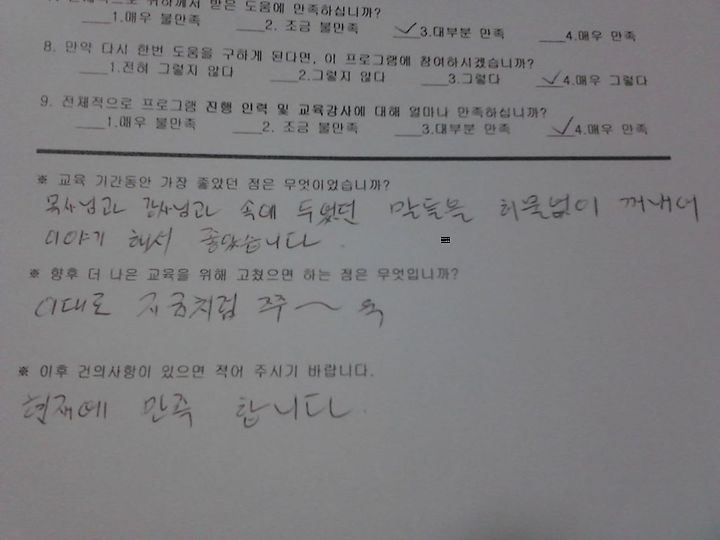 전체적으로 귀하께서 받은 도움에 만족하십니까?
___1.매우 불만족 ___2. 조금 불만족 ✓3.대부분 만족 ___4.매우 만족
8. 만약 다시 한번 도움을 구하게 된다면, 이 프로그램에 참여하시겠습니까?
___1.전혀 그렇지 않다 ___2.그렇지 않다 ___3.그렇다 ✓4.매우 그렇다
9. 전체적으로 프로그램 진행 인력 및 교육강사에 대해 얼마나 만족하십니까?
___1.매우 불만족 ___2. 조금 불만족 ___3.대부분 만족 ✓4.매우 만족
※ 교육 기간동안 가장 좋았던 점은 무엇이었습니까?
목사님과 강사님과 속에 두었던 말들을 허물없이 꺼내어
이야기 해서 좋았습니다.
※ 향후 더 나은 교육을 위해 고쳤으면 하는 점은 무엇입니까?
이대로 지금처럼 쭈~욱
※ 이후 건의사항이 있으면 적어 주시기 바랍니다.
현재에 만족 합니다.